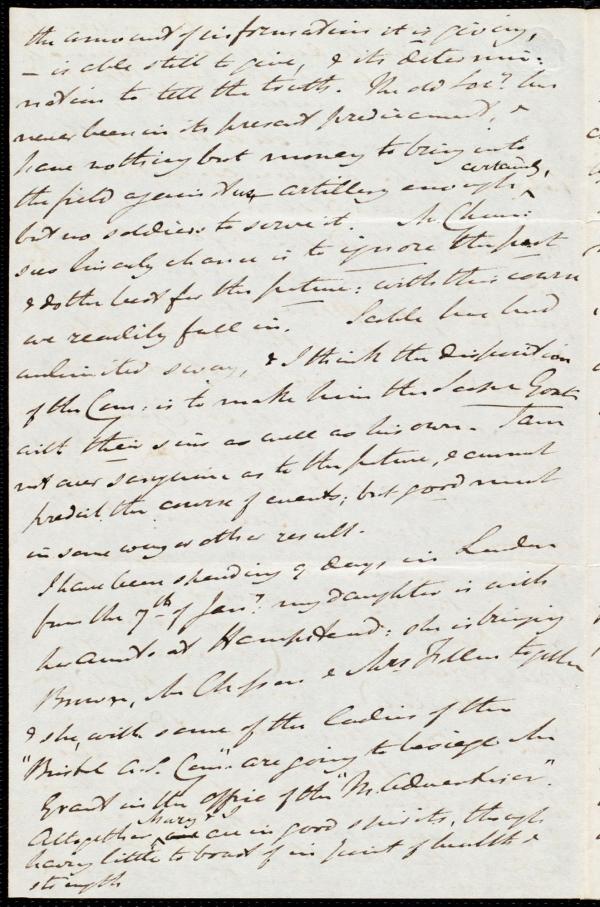 the amount of information it is giving,
— is able still to give, & its determi-
nation to tell the truth. The old Soc.y has
never been in its present predicament, &
have nothing but money to bring into
the field against us, artillery enough, certainly,
but no soldiers to serve it. Mr Cham:
sees his only chance is to ignore the past
& do the best for the future: with this course
we readily fall in. Scoble has had
unlimited sway, & I think the disposition
of the Com: is to make him the Scape Goat
with their sins as well as his own. I am
not over sanguine as to the future, & cannot
predict the course of events; but good must
in some way or other result.
I have been spending 9 days in London
from the 7th of Jan.y my daughter is with
her aunt at Hampstead: she is bringing
Brown, Mr Chesson & Mrs together
& she, with some of the ladies of the
"Bristol A.S. Com." are going to besiege Mr
Grant in the office of the "M. Advertiser".
Altogether, Mary & I are in good spirits, though
having little to boast of in point of health &
strength